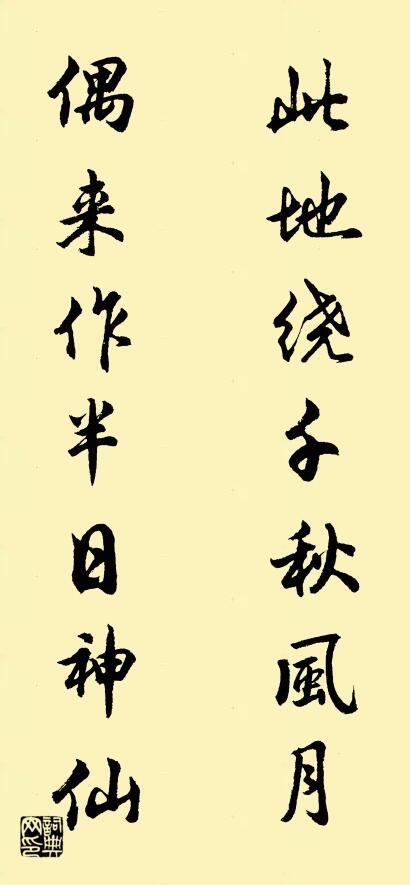 此地绕千秋風月
偶来作半日神仙
詞典
网印